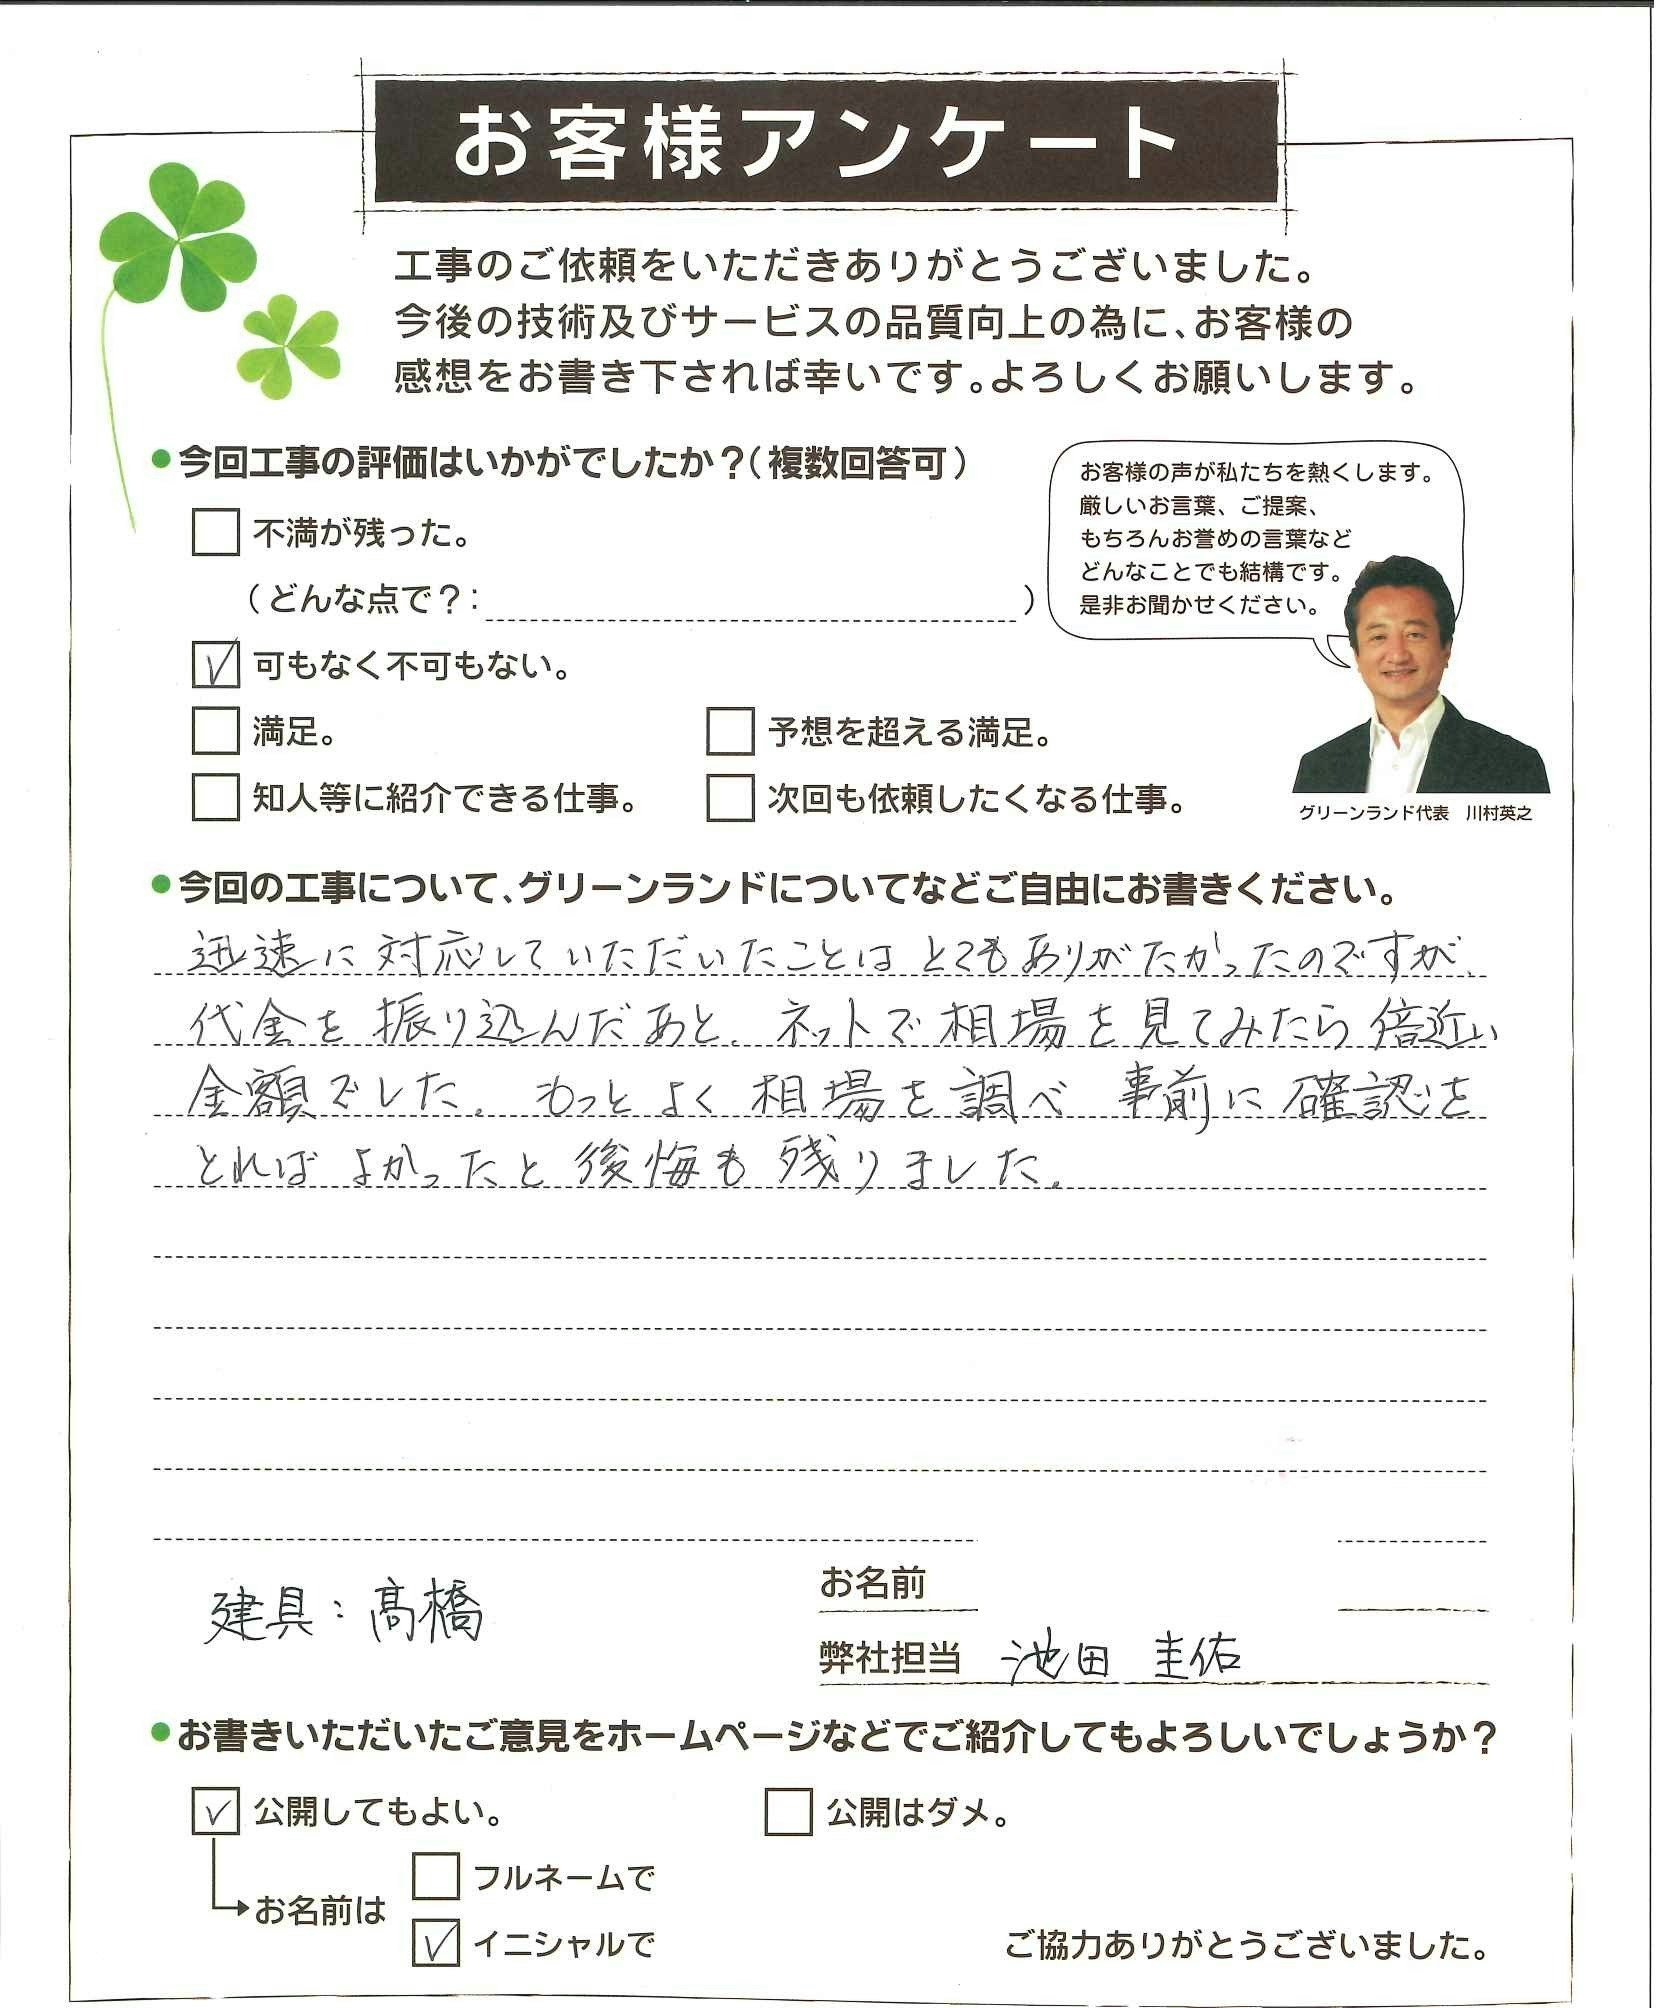 お客様アンケート
工事のご依頼をいただきありがとうございました。
今後の技術及びサービスの品質向上の為に、お客様の
感想をお書き下されば幸いです。よろしくお願いします。
●今回工事の評価はいかがでしたか？（複数回答可）
□ 不満が残った。
（どんな点で？：　　　）
☑ 可もなく不可もない。
□ 満足。　□ 予想を超える満足。
□ 知人等に紹介できる仕事。　□ 次回も依頼したくなる仕事。
お客様の声が私たちを熱くします。
厳しいお言葉、ご提案、
もちろんお誉めの言葉など
どんなことでも結構です。
是非お聞かせください。
グリーンランド代表　川村英之
●今回の工事について、グリーンランドについてなどご自由にお書きください。
迅速に対応していただいたことはとてもありがたかったのですが、
代金を振り込んだあと、ネットで相場を見てみたら倍近い
金額でした。もっとよく相場を調べ 事前に確認を
とればよかったと後悔も残りました。
建具：髙橋
お名前
弊社担当　池田 圭佑
●お書きいただいたご意見をホームページなどでご紹介してもよろしいでしょうか？
☑ 公開してもよい。　□ 公開はダメ。
お名前は
□ フルネームで
☑ イニシャルで
ご協力ありがとうございました。